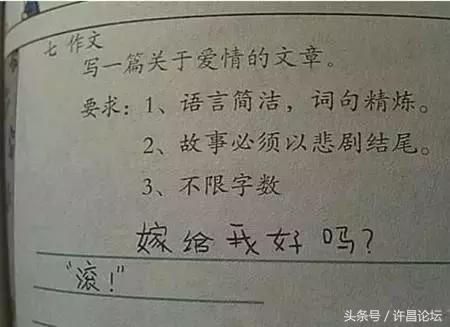 七 作文
写一篇关于爱情的文章。
要求：1、语言简洁，词句精炼。
2、故事必须以悲剧结尾。
3、不限字数
嫁给我好吗？
“滚！”
头条号／许昌论坛